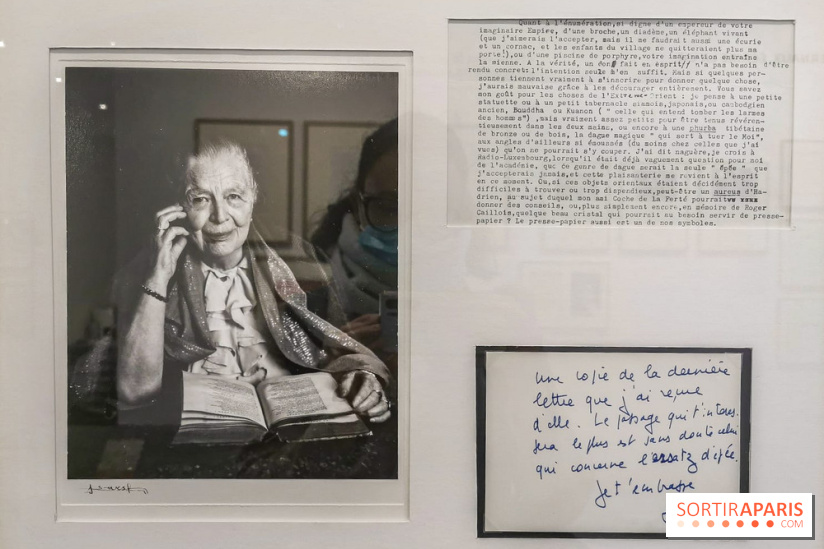 Quant à l'énumération,si digne d'un empereur de votre
imaginaire Empire, d'une broche,un diadème,un éléphant vivant
(que j'aimerais l'accepter, mais il me faudrait aussi une écurie
et un cornac, et les enfants du village ne quitteraient plus ma
porte!),ou d'une piscine de porphyre,votre imagination entraîna
la mienne. A la vérité, un don fait en esprit n'a pas besoin d'être
rendu concret:l'intention seule m'en suffit. Mais si quelques per-
sonnes tiennent vraiment à s'inscrire pour donner quelque chose,
j'aurais mauvaise grâce à les décourager entièrement. Vous savez
mon goût pour les choses de l'Extreme-Orient : je pense à une petite
statuette ou à un petit tabernacle siamois,japonais,ou cambodgien
ancien, Bouddha ou Kuanon ( " celle qui entend tomber les larmes
des hommes") ,mais vraiment assez petits pour être tenus révéren-
tieusement dans les deux mains, ou encore à une phurba tibétaine
de bronze ou de bois, la dague magique " qui sert à tuer le Moi",
aux angles d'ailleurs si émoussés (du moins chez celles que j'ai
vues) qu'on ne pourrait s'y couper. J'ai dit naguère,je crois à
Radio-Luxembourg,lorsqu'il était déjà vaguement question pour moi
de l'académie, que ce genre de dague serait la seule " épée " que
j'accepterais jamais,et cette plaisanterie me revient à l'esprit
en ce moment. Ou,si ces objets orientaux étaient décidément trop
difficiles à trouver ou trop dispendieux,peut-être un aureus d'Ha-
drien, au sujet duquel mon ami Coche de La Ferté pourrait
donner des conseils, ou,plus simplement encore,en mémoire de Roger
Caillois,quelque beau cristal qui pourrait au besoin servir de presse-
papier ? Le presse-papier aussi est un de nos symboles.
une copie de la dernière
lettre que j'ai reçue
d'elle. Le passage qui t'intéres-
sera le plus est sans doute celui
qui concerne l'ersatz d'épée.
Je t'embrasse
SORTIRAPARIS
.COM